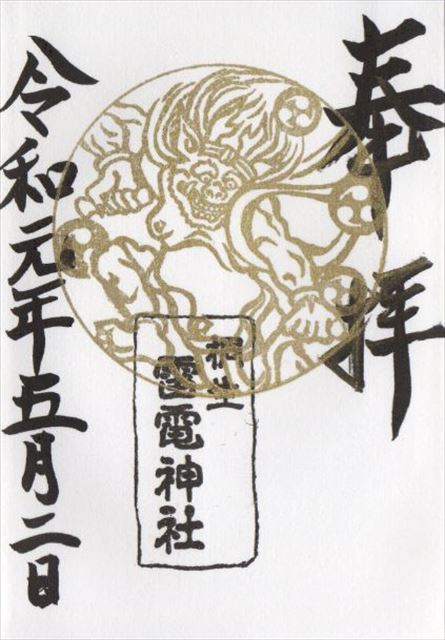 奉拝
桐生
雷電神社
令和元年五月二日